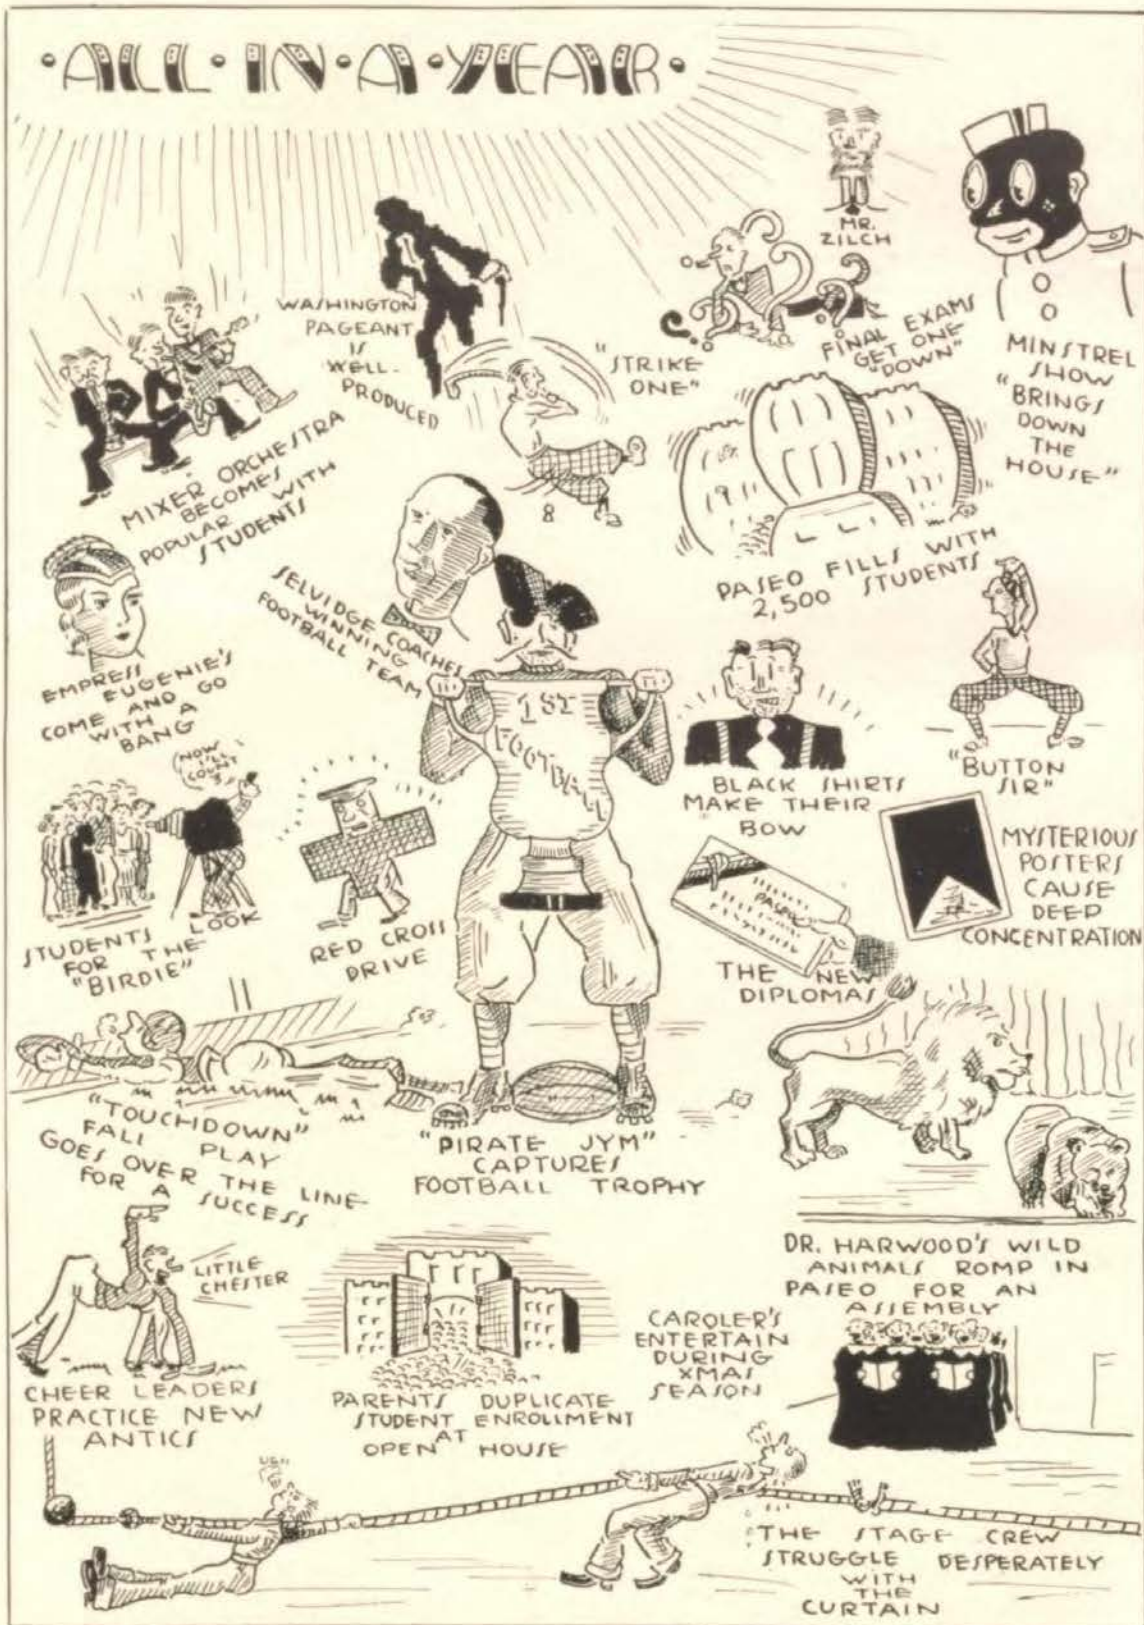 ·ALL·IN·A·YEAR·
MR.
ZILCH
WASHINGTON
PAGEANT
IS
WELL-
PRODUCED
"STRIKE
ONE"
FINAL EXAMS
GET ONE
"DOWN"
MINSTREL
SHOW
"BRINGS
DOWN
THE
HOUSE"
MIXER ORCHESTRA
BECOMES
POPULAR WITH
STUDENTS
8
PASEO FILLS WITH
2,500 STUDENTS
SELVIDGE COACHES
WINNING
FOOTBALL TEAM
EMPRESS
EUGENIE'S
COME AND GO
WITH A
BANG
1ST
FOOTBALL
BLACK SHIRTS
MAKE THEIR
BOW
"BUTTON
SIR"
NOW
I'LL
COUNT
STUDENTS LOOK
FOR THE
"BIRDIE"
RED CROSS
DRIVE
PASEO
THE NEW
DIPLOMAS
MYSTERIOUS
POSTERS
CAUSE
DEEP
CONCENTRATION
"TOUCHDOWN"
FALL PLAY
GOES OVER THE LINE
FOR A SUCCESS
"PIRATE JYM"
CAPTURES
FOOTBALL TROPHY
DR. HARWOOD'S WILD
ANIMALS ROMP IN
PASEO FOR AN
ASSEMBLY
LITTLE
CHESTER
CHEER LEADERS
PRACTICE NEW
ANTICS
PARENTS DUPLICATE
STUDENT ENROLLMENT
AT
OPEN HOUSE
CAROLER'S
ENTERTAIN
DURING
XMAS
SEASON
THE STAGE CREW
STRUGGLE DESPERATELY
WITH
THE
CURTAIN